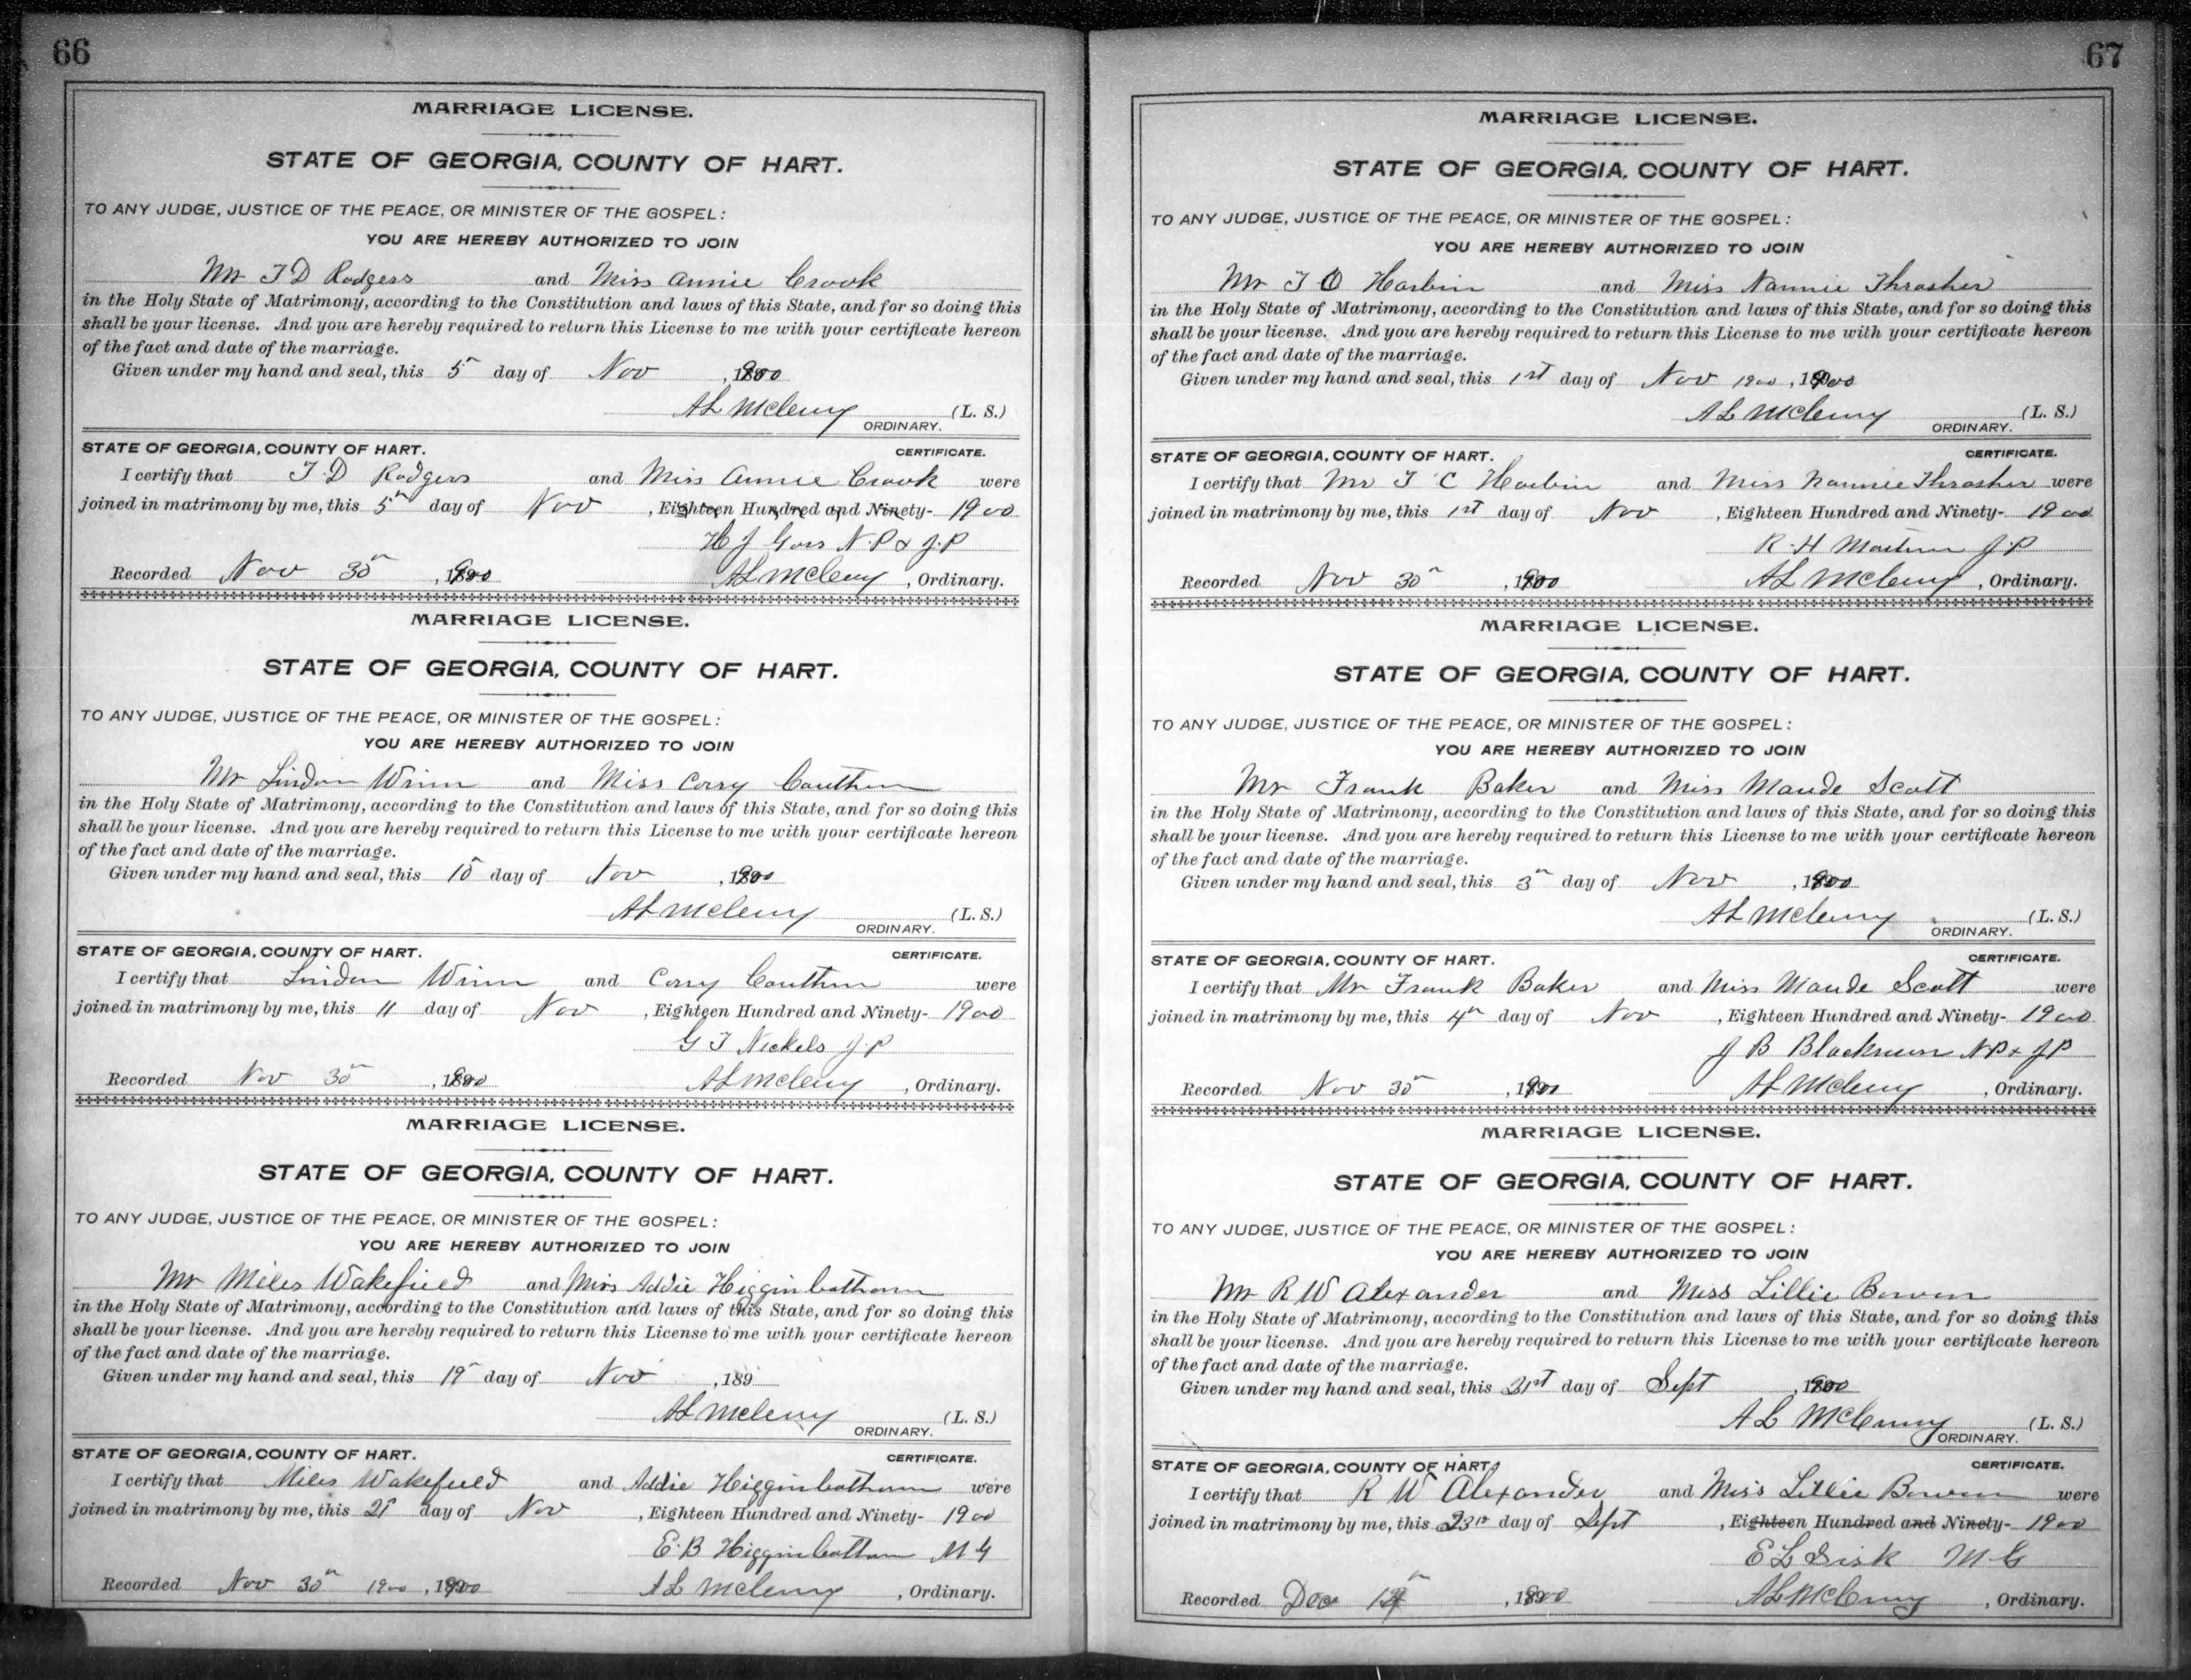 66
MARRIAGE LICENSE.
STATE OF GEORGIA, COUNTY OF HART.
TO ANY JUDGE, JUSTICE OF THE PEACE, OR MINISTER OF THE GOSPEL:
YOU ARE HEREBY AUTHORIZED TO JOIN
Mr J D Rodgers and Miss Annie Crook
in the Holy State of Matrimony, according to the Constitution and laws of this State, and for so doing this
shall be your license. And you are hereby required to return this License to me with your certificate hereon
of the fact and date of the marriage.
Given under my hand and seal, this 5" day of Nov , 1900
(L. S.)
ORDINARY.
STATE OF GEORGIA, COUNTY OF HART. CERTIFICATE.
I certify that J D Rodgers and Miss Annie Crook were
joined in matrimony by me, this 5" day of Nov , Eighteen Hundred and Ninety- 1900
H J Goss N.P & J.P
Recorded Nov 30" , 1900 , Ordinary.
MARRIAGE LICENSE.
STATE OF GEORGIA, COUNTY OF HART.
TO ANY JUDGE, JUSTICE OF THE PEACE, OR MINISTER OF THE GOSPEL:
YOU ARE HEREBY AUTHORIZED TO JOIN
Mr Lindon Winn and Miss Corry Cauthen
in the Holy State of Matrimony, according to the Constitution and laws of this State, and for so doing this
shall be your license. And you are hereby required to return this License to me with your certificate hereon
of the fact and date of the marriage.
Given under my hand and seal, this 10 day of Nov , 1900
(L. S.)
ORDINARY.
STATE OF GEORGIA, COUNTY OF HART. CERTIFICATE.
I certify that Lindon Winn and Corry Cauthen were
joined in matrimony by me, this 11 day of Nov , Eighteen Hundred and Ninety- 1900
G T Nickels J.P
Recorded Nov 30" , 1900 , Ordinary.
MARRIAGE LICENSE.
STATE OF GEORGIA, COUNTY OF HART.
TO ANY JUDGE, JUSTICE OF THE PEACE, OR MINISTER OF THE GOSPEL:
YOU ARE HEREBY AUTHORIZED TO JOIN
Mr Miles Wakefield and Miss Addie Higginbotham
in the Holy State of Matrimony, according to the Constitution and laws of this State, and for so doing this
shall be your license. And you are hereby required to return this License to me with your certificate hereon
of the fact and date of the marriage.
Given under my hand and seal, this 19" day of Nov , 189
(L. S.)
ORDINARY.
STATE OF GEORGIA, COUNTY OF HART. CERTIFICATE.
I certify that Miles Wakefield and Addie Higginbotham were
joined in matrimony by me, this 21 day of Nov , Eighteen Hundred and Ninety- 1900
E. B Higginbotham M G
Recorded Nov 30" 1900 , 1900 , Ordinary.
67
MARRIAGE LICENSE.
STATE OF GEORGIA, COUNTY OF HART.
TO ANY JUDGE, JUSTICE OF THE PEACE, OR MINISTER OF THE GOSPEL:
YOU ARE HEREBY AUTHORIZED TO JOIN
Mr T O Harbin and Miss Nannie Thrasher
in the Holy State of Matrimony, according to the Constitution and laws of this State, and for so doing this
shall be your license. And you are hereby required to return this License to me with your certificate hereon
of the fact and date of the marriage.
Given under my hand and seal, this 1st day of Nov 1900 , 1900
(L. S.)
ORDINARY.
STATE OF GEORGIA, COUNTY OF HART. CERTIFICATE.
I certify that Mr T C Harbin and Miss Nannie Thrasher were
joined in matrimony by me, this 1st day of Nov , Eighteen Hundred and Ninety- 1900
R. H Martin J.P
Recorded Nov 30" , 1900 , Ordinary.
MARRIAGE LICENSE.
STATE OF GEORGIA, COUNTY OF HART.
TO ANY JUDGE, JUSTICE OF THE PEACE, OR MINISTER OF THE GOSPEL:
YOU ARE HEREBY AUTHORIZED TO JOIN
Mr Frank Baker and Miss Maude Scott
in the Holy State of Matrimony, according to the Constitution and laws of this State, and for so doing this
shall be your license. And you are hereby required to return this License to me with your certificate hereon
of the fact and date of the marriage.
Given under my hand and seal, this 3" day of Nov , 1900
(L. S.)
ORDINARY.
STATE OF GEORGIA, COUNTY OF HART. CERTIFICATE.
I certify that Mr Frank Baker and Miss Maude Scott were
joined in matrimony by me, this 4" day of Nov , Eighteen Hundred and Ninety- 1900
J B Blackmun NP & JP
Recorded Nov 30" , 1900 , Ordinary.
MARRIAGE LICENSE.
STATE OF GEORGIA, COUNTY OF HART.
TO ANY JUDGE, JUSTICE OF THE PEACE, OR MINISTER OF THE GOSPEL:
YOU ARE HEREBY AUTHORIZED TO JOIN
Mr R W Alexander and Miss Lillie Bowen
in the Holy State of Matrimony, according to the Constitution and laws of this State, and for so doing this
shall be your license. And you are hereby required to return this License to me with your certificate hereon
of the fact and date of the marriage.
Given under my hand and seal, this 21st day of Sept , 1900
(L. S.)
ORDINARY.
STATE OF GEORGIA, COUNTY OF HART. CERTIFICATE.
I certify that R W Alexander and Miss Lillie Bowen were
joined in matrimony by me, this 23rd day of Sept , Eighteen Hundred and Ninety- 1900
E L Sisk M G
Recorded Dec , 1900 , Ordinary.